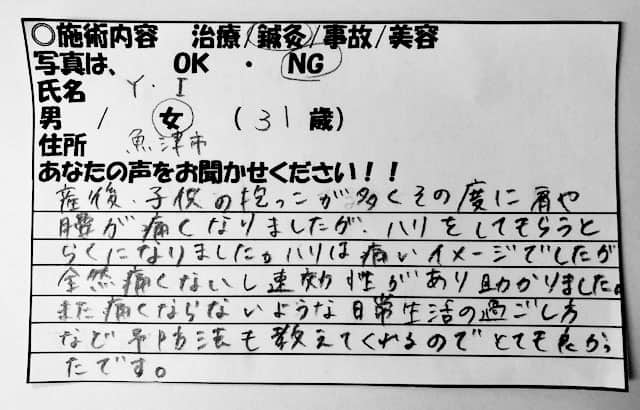 ◎施術内容　治療/鍼灸/事故/美容
写真は、　OK　・　NG
氏名　Y・I
男　/　女　(31歳)
住所　魚津市
あなたの声をお聞かせください！！
産後、子供の抱っこが多くその度に肩や
腰が痛くなりましたが、ハリをしてもらうと
らくになりました。ハリは痛いイメージでしたが
全然痛くないし速効性があり助かりました。
また痛くならないような日常生活の過ごし方
など予防法も教えてくれるのでとても良かっ
たです。